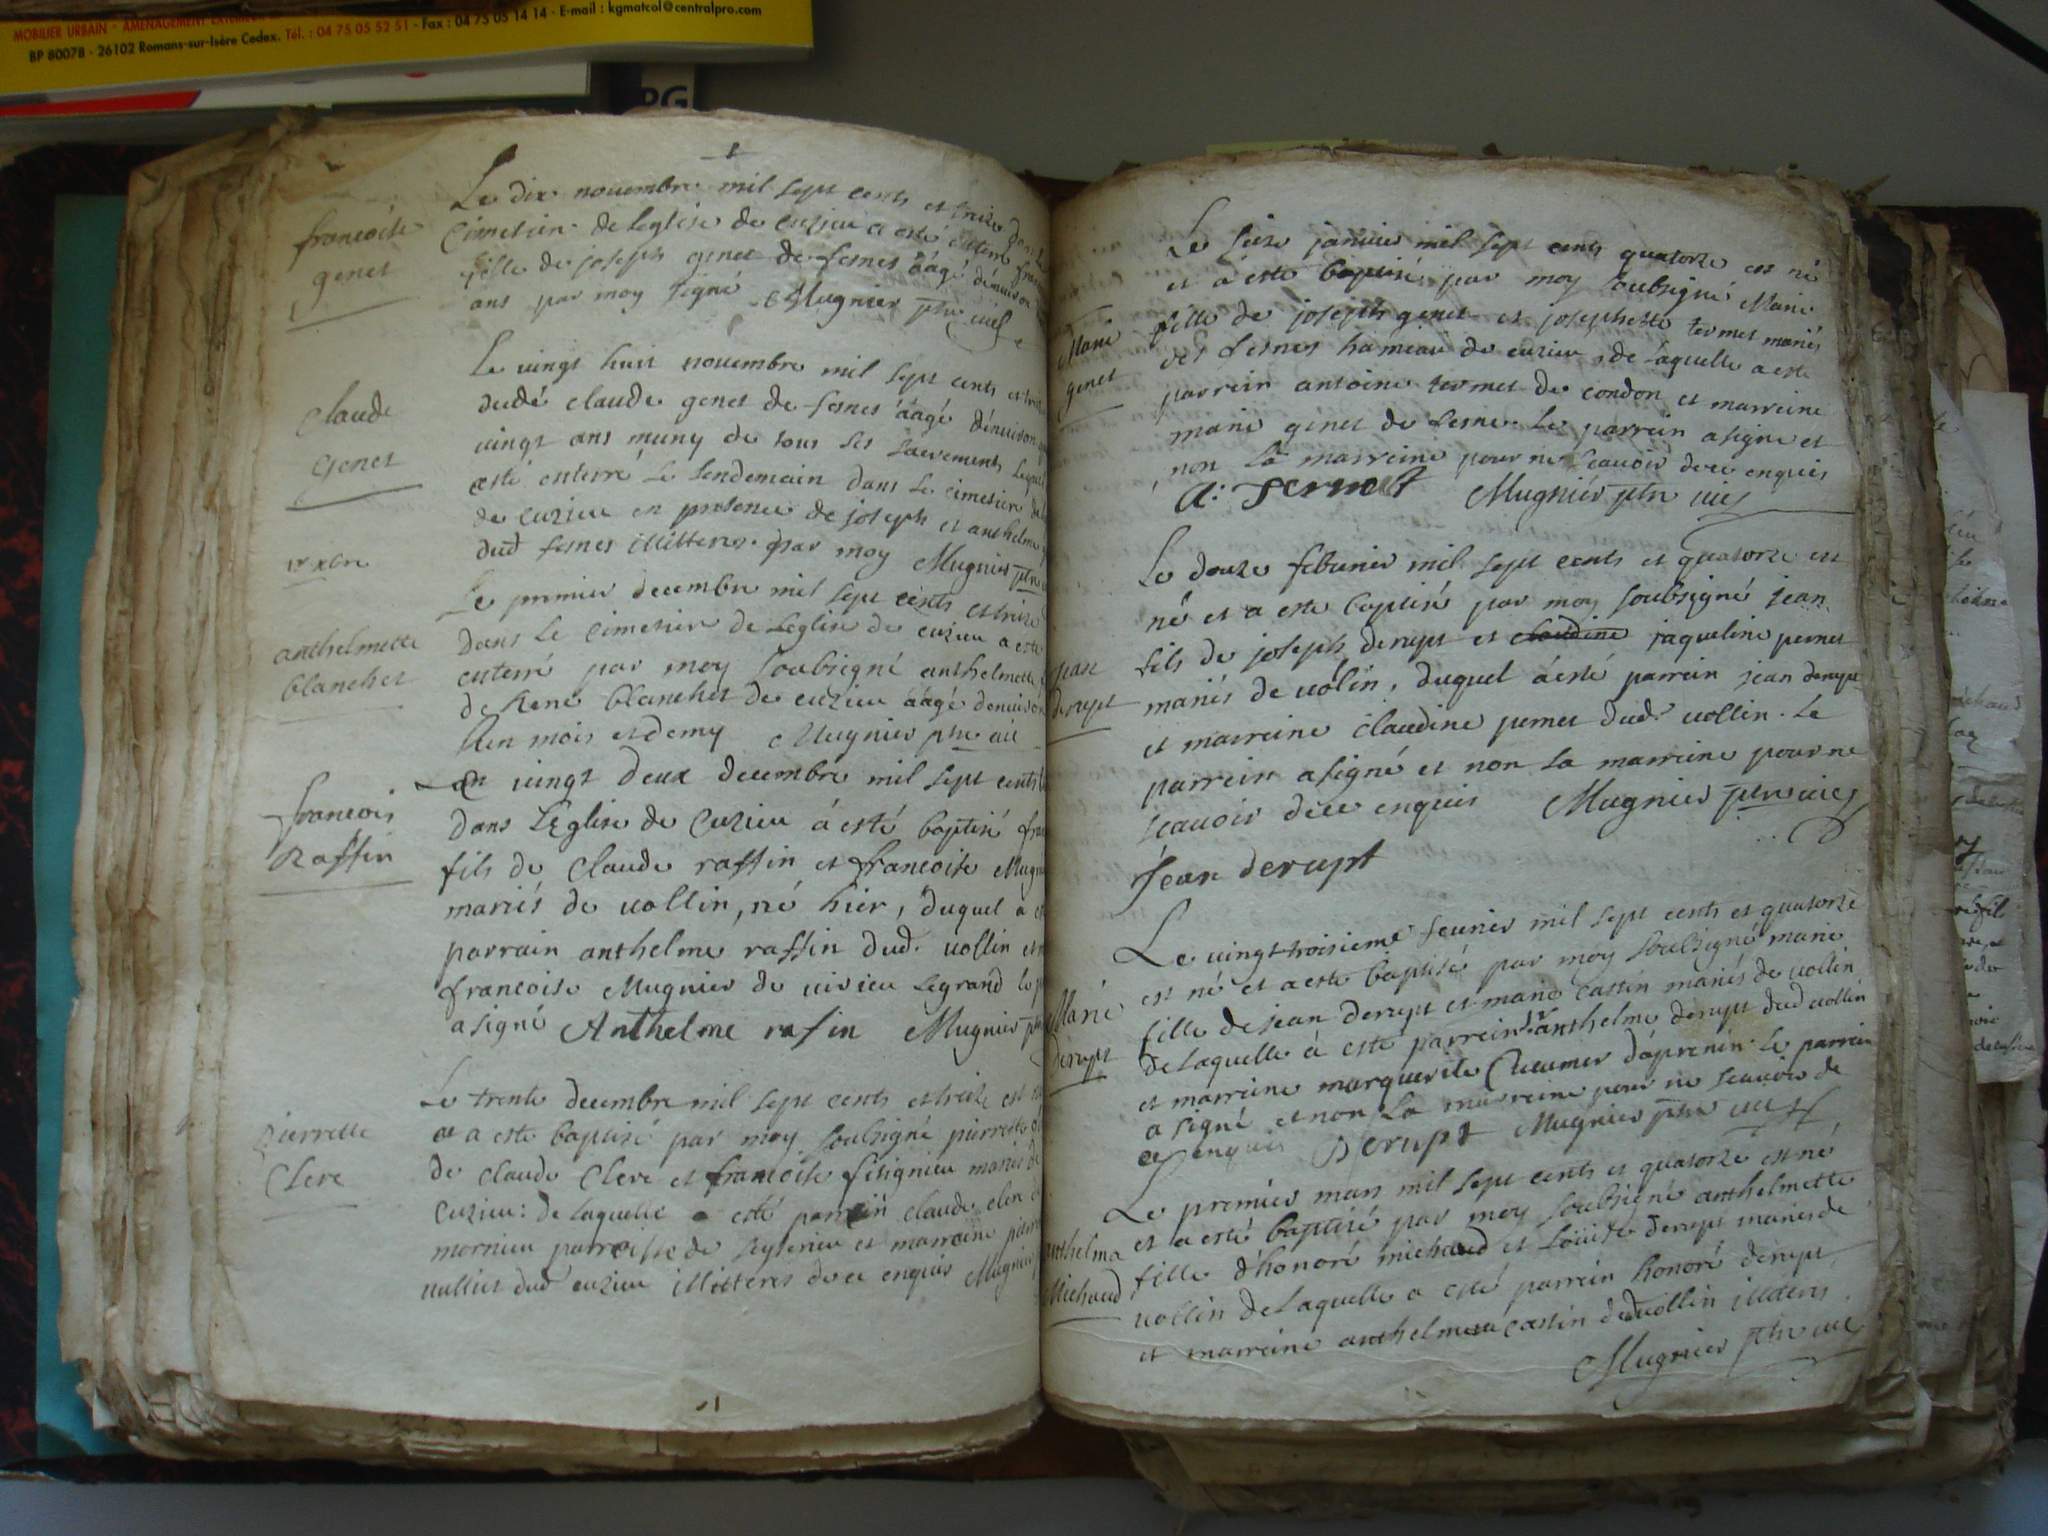 MOBILIER URBAIN - AMENAGEMENT EXTERIEUR
BP 80078 - 26102 Romans-sur-Isère Cedex. Tél. : 04 75 05 52 51 - Fax : 04 75 05 14 14 - E-mail : kgmatcol@centralpro.com
PG
francoise
genet
Le dix novembre mil sept cents et treize dans le
Cimetier de leglise de cuzieu a esté enterré
fille de joseph genet de fesnes áágé denuiron
ans par moy signé Mugnier ptre vic
Claude
Genet
Le vingt huit novembre mil sept cents et
dudé claude genet de fesnes áágé dénuiron
vingt ans muny de tous ses sacrements
esté enterré le lendemain dans le cimetier
de cuzieu en presence de joseph et anthelme
dud fesnes illitterez par moy Mugnier ptre
anthelmette
blanchet
Le premier decembre mil sept cents et treize
dans le cimetier de Leglise de cuzieu a esté
enterré par moy soubsigné anthelmette
de Rene blanchet de cuzieu áágé denuiron
un mois et demy Mugnier ptre vic
francois
Raffin
Le vingt deux decembre mil sept cents
dans LEglise de Cuzieu á esté baptisé
fils de Claude raffin et francoise
mariés de vollin, né hier, duquel a
parrain anthelme raffin dud. vollin
francoise Mugnier de virieu legrand
a signé Anthelme rafin Mugnier
pierrette
Clere
Le trente decembre mil sept cents et treize est
et a este baptisé par moy soubsigné pierrette
de claude Clere et francoise fisignieu mariés de
cuzieu: de laquelle a esté parrein claude
mornieu parroisse de seyserieu et marraine
dud cuzieu illitteres de ce enquis Mugnier
Marie
genet
Le seize janvier mil sept cents quatorze est né
et á esté baptisé par moy soubsigné Marie
fille de joseph genet et josephette termet mariés
de fesnes hameau de cuzieu, de laquelle a este
parrein antoine termet de condon et marreine
marie genet de fesne. Le parrein a signé et
non la marreine pour ne scauoir de ce enquis
A: Termet Mugnier ptre vic
jean
derupt
Le douze feburier mil sept cents et quatorze est
né et a este baptisé par moy soubsigné jean
fils de joseph derupt et claudine jaqueline pernet
mariés de volin, duquel á esté parrein jean derupt
et marreine claudine pernet dud. vollin. Le
parrein a signé et non la marreine pour ne
scauoir de ce enquis Mugnier ptre vic
Jean derupt
Marie
derupt
Le vingt troisieme feurier mil sept cents et quatorze
est né et a este baptisé par moy soubsigné marie
fille de jean derupt et marie castin mariés de vollin
de laquelle á esté parrein anthelme derupt dud vollin
et marreine marguerite dáprenin. le parrein
a signé et non la marreine pour ne scauoir de
ce enquis Derupt Mugnier ptre vic
anthelma
Michaud
Le premier mars mil sept cents et quatorze est né
et a esté baptisé par moy soubsigné anthelmette
fille d'honoré michaud et louise derupt mariés de
vollin de Laquelle a esté parrein honoré derupt
et marreine anthelmette castin dud vollin illiters
Mugnier ptre vic